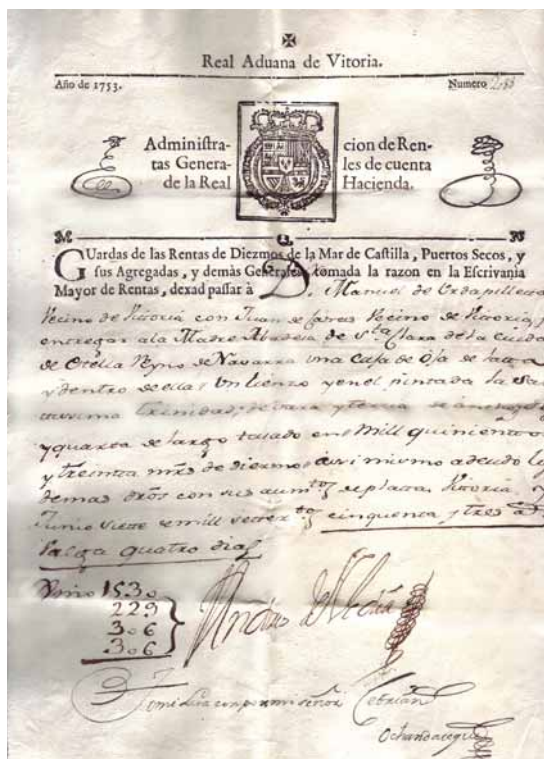 Real Aduana de Vitoria.
Año de 1753.
Numero
Administra- cion de Ren-
tas Genera- les de cuenta
de la Real Hacienda.
M G N
GUardas de las Rentas de Diezmos de la Mar de Castilla, Puertos Secos, y
sus Agregadas, y demàs Generales, tomada la razon en la Escrivania
Mayor de Rentas, dexad passar à D. Manuel de
Vecino de Vitoria con Juan de Vecino de Vitoria,
entregar ala Madre Abadesa de Sta Clara dela ciudad
de Reyno de Navarra una Caja de Oja de lata
y dentro de ella Un lienzo y enel pintada la San
tissima Trinidad, de vara y tercia de ancho
y quarta de largo tasado en Mill quinientos
y treinta mrs de diezmos asi mismo adeudo los
demas dros con sus aumtos de plata, Vitoria, y
Junio siette de mill settectos cinquenta y tres
Valga quatro dias
Dmo 1530
229
306
306
Tomé la con por mi señor Cebrian